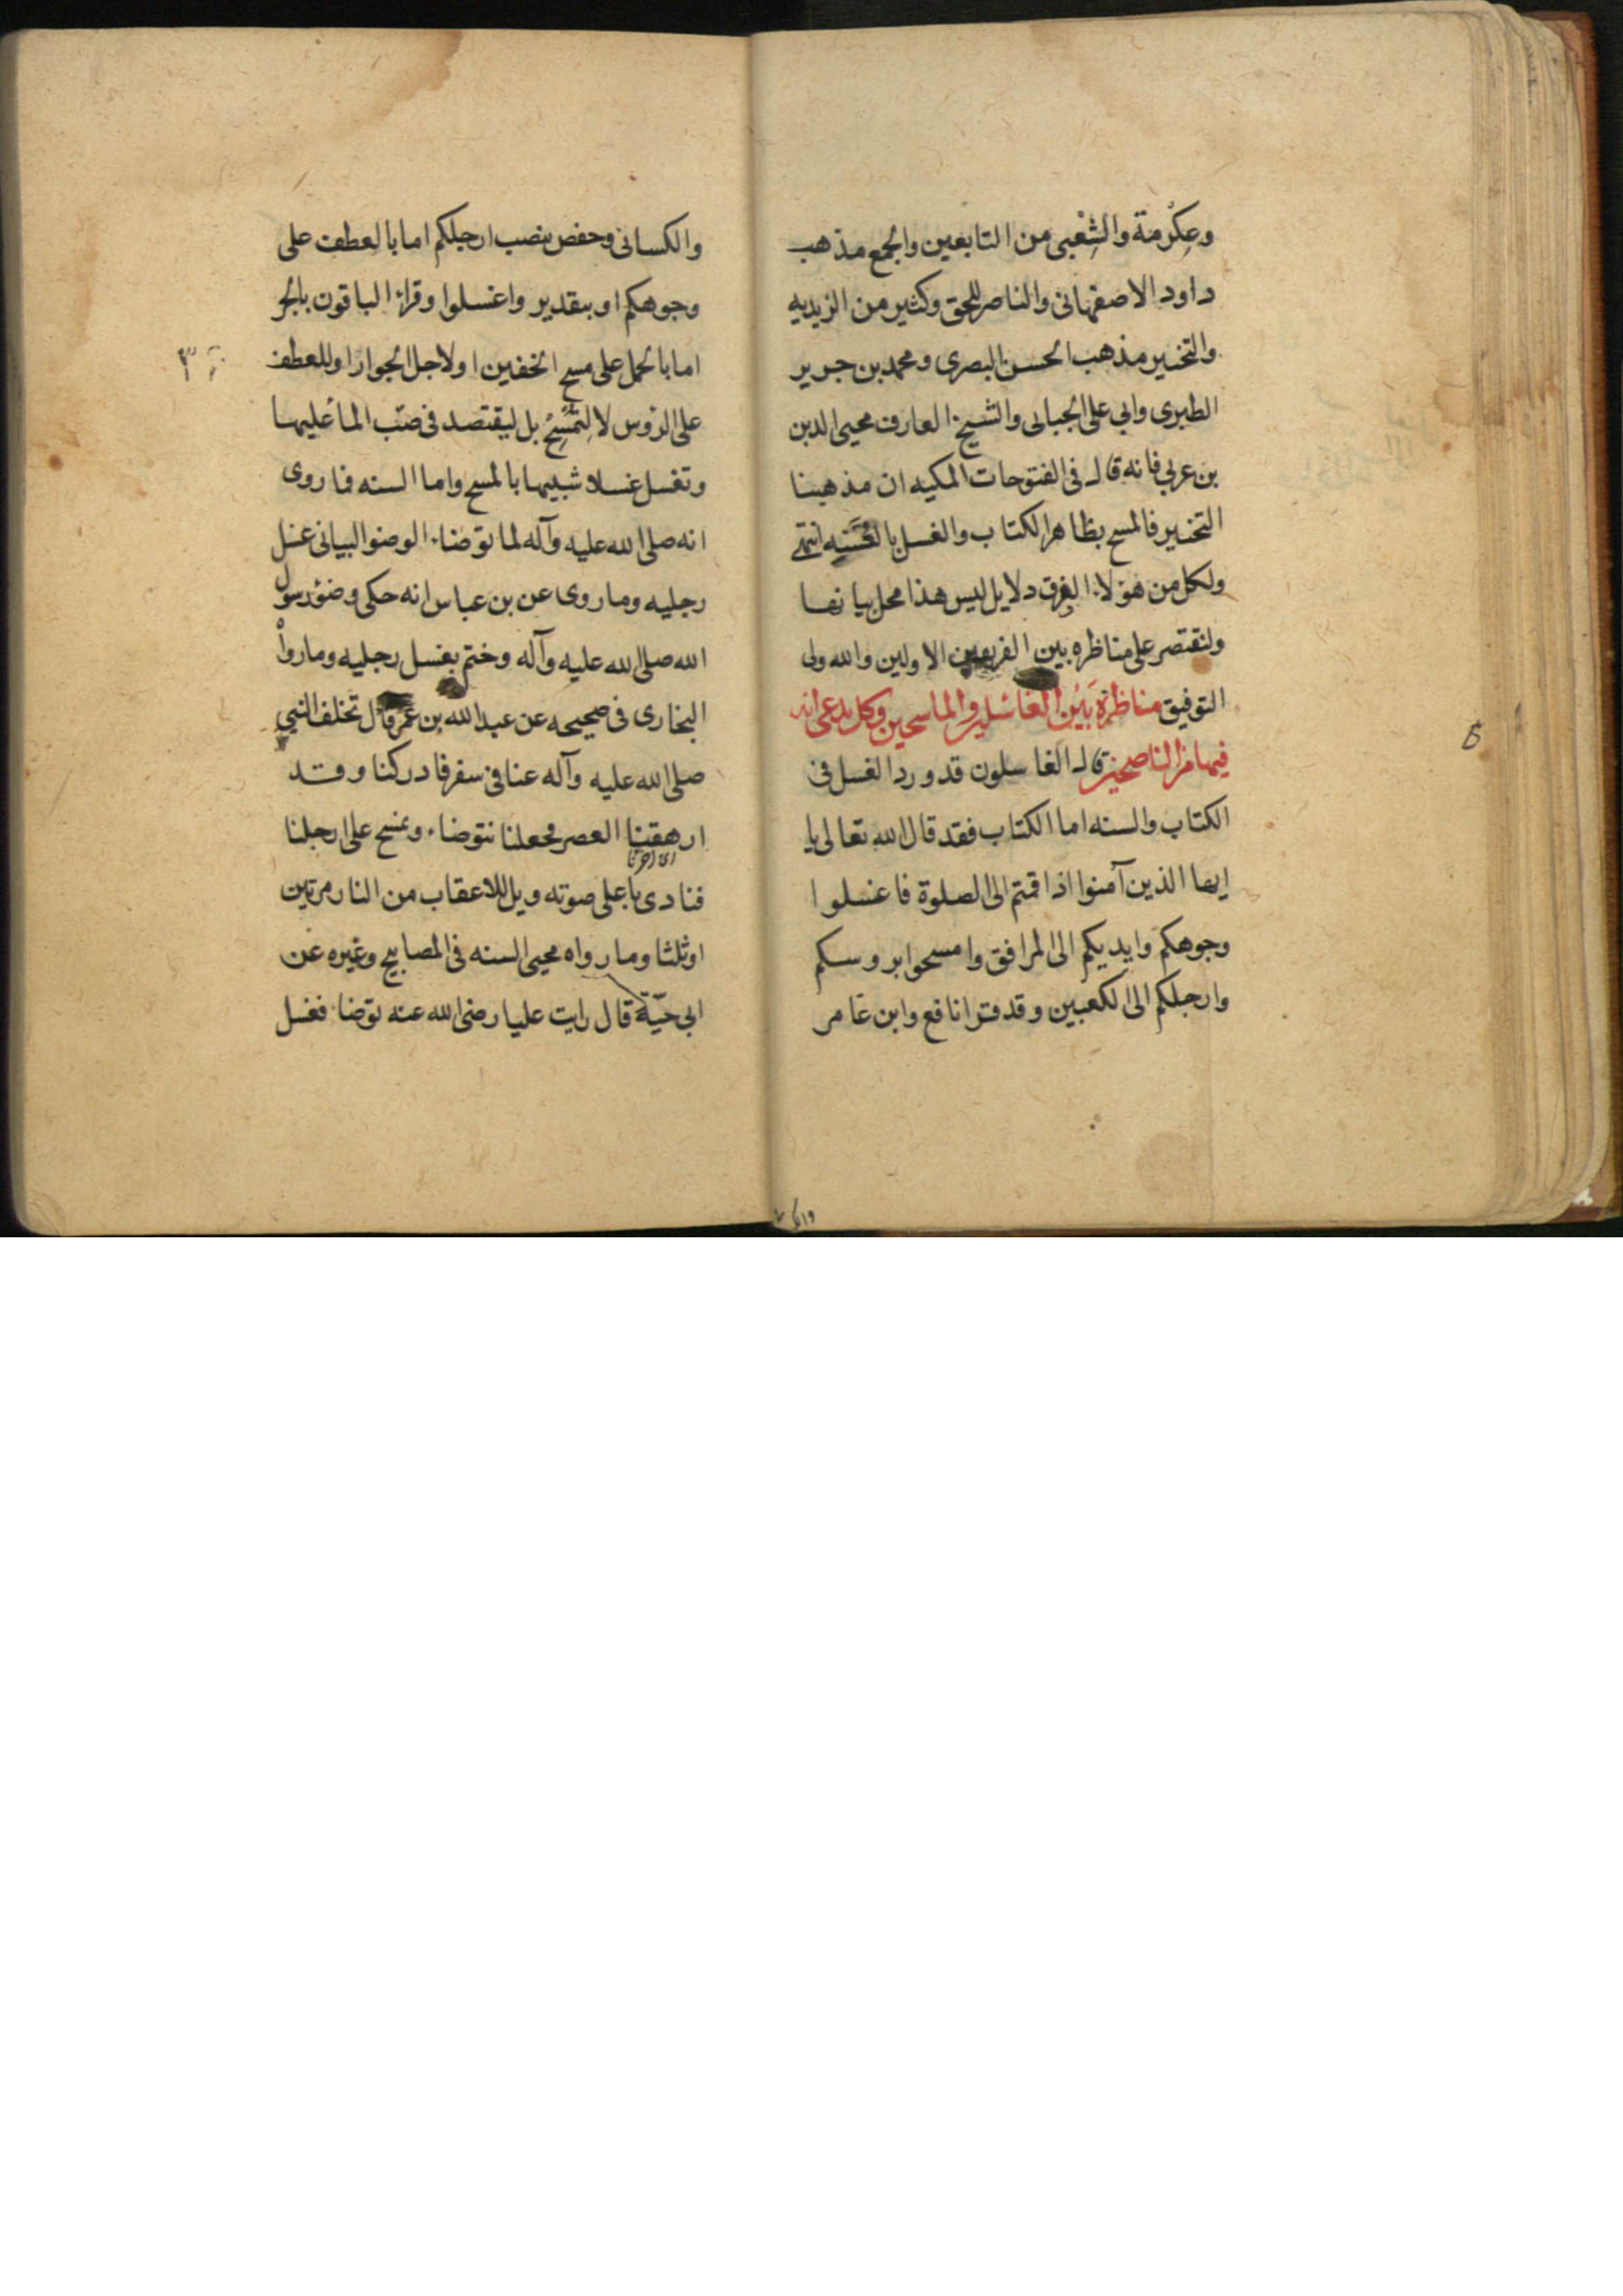 وعِكْرمَة والشِعْبى من التابعين والجمع مذهب
داود الاصفهانى والناصر للحق وكثير من الزيديه
والتخيير مذهب الحسن البصرى ومحمد بن جرير
الطبرى وابي على الجبالى والشيخ العارف محيى الدين
بن عربي فانه قال فى الفتوحات المكيه ان مذهبنا
التخيير فالمسح بظاهر الكتاب والغسل بالسُنيه انتهى
ولكل من هؤلاء الفرق دلايل ليس هذا محل بيانها
ولنقتصر على مناظره بين الفريقين الاولين والله ولى
التوفيق مناظرة بَيْن الغاسلين والماسحين وكل يدعى انه
فيها من الناصحين قال الغاسلون قد ورد الغسل فى
الكتاب والسنه اما الكتاب فقد قال الله تعالى يا
ايها الذين آمنوا اذا قمتم الى الصلوة فاغسلوا
وجوهكم وايديكم الى المرافق وامسحوا بروسكم
وارجلكم الى الكعبين وقد قرا نافع وابن عامر
والكسائى وحفص بنصب ارجلكم اما بالعطف على
وجوهكم او بتقدير واغسلوا وقراء الباقون بالجر
اما بالحمل على مسح الخفين او لاجل الجوار او للعطف
على الرؤس لا لِتُمْسَحْ بل ليقتصد فى صّب الما عليها
وتغسل غسلا شبيها بالمسح واما السنه فما روى
انه صلى الله عليه وآله لما توضاء الوضوا البيانى غسل
رجليه وما روى عن بن عباس انه حكى وضؤ رسول
الله صلى الله عليه وآله وختم بغسل رجليه وما رواْ
البخارى فى صحيحه عن عبد الله بن عمر قال تخلف النبي
صلى الله عليه وآله عنا فى سفر فادركنا وقد
ارهقنا العصر فجعلنا نتوضاء ونمسح على ارجلنا
اى اخرنا
فنادى باعلى صوته ويل للاعقاب من النار مرتين
او ثلثا وما رواه محيى السنه فى المصابيح وغيره عن
ابى حيّة قال رايت عليا رضى الله عنه توضا فغسل